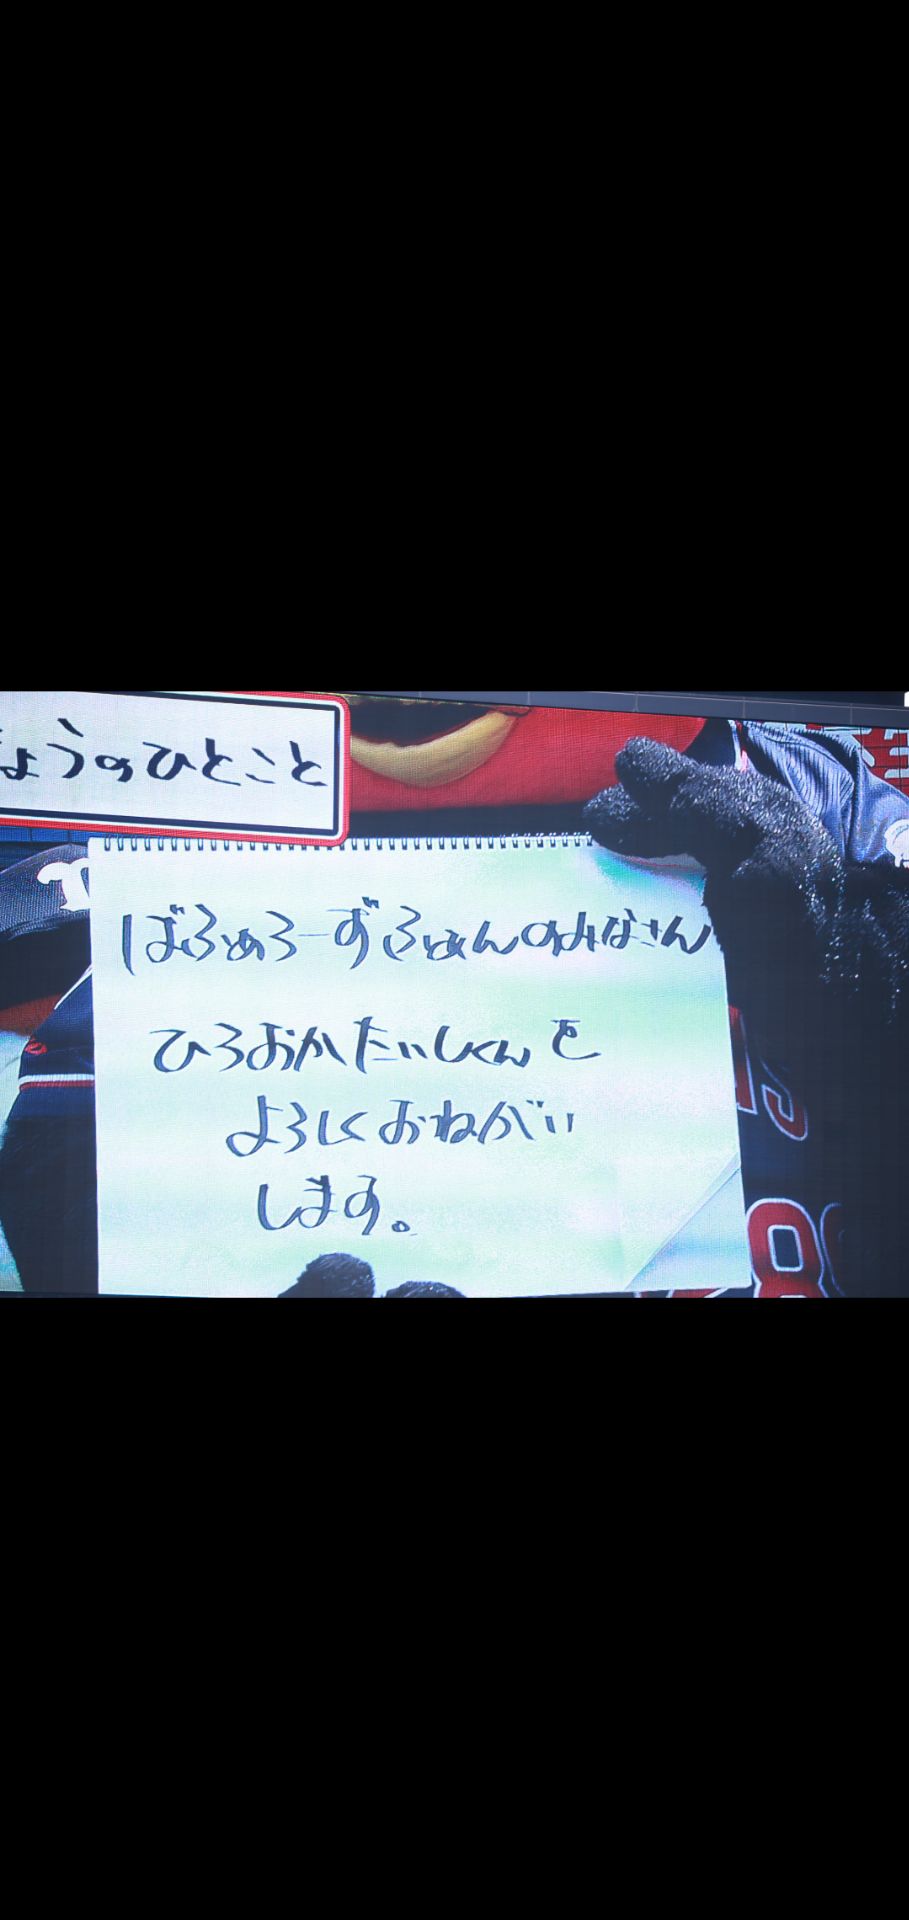 ょうのひとこと
ばふぁろーずふぁんのみなさん
ひろおかたいしくんを
よろしくおねがい
します。